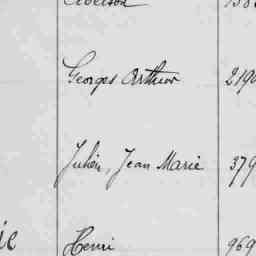 Georges Arthur 219
Julien, Jean Marie 379
Henri 969